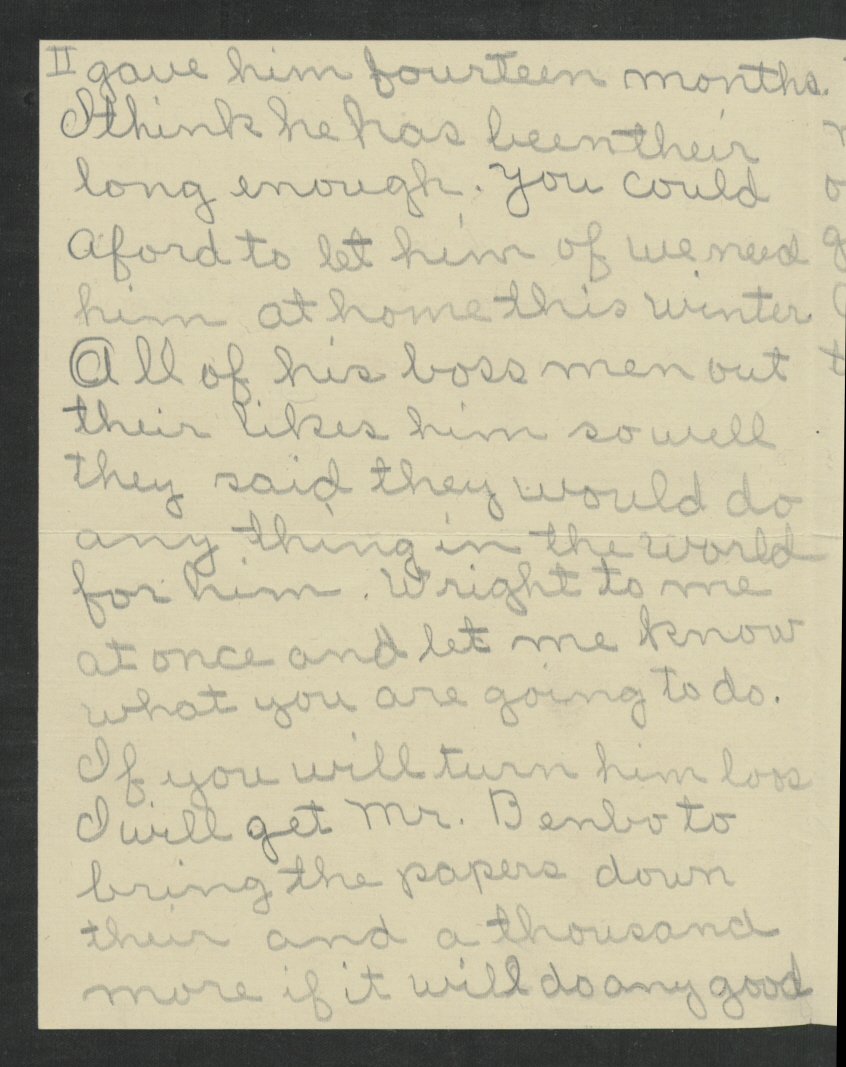 II gave him fourteen months.
I think he has been their
long enough. you could
aford to let him of we need
him at home this winter
All of his boss men out
their likes him so well
they said they would do
any thing in the world
for him. Wright to me
at once and let me know
what you are going to do.
If you will turn him loos
I will get Mr. Benbo to
bring the papers down
their and a thousand
more if it will do any good